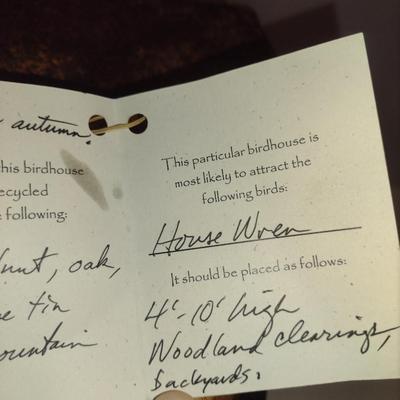 autumn.
this birdhouse
recycled
following:
oak,
tin
This particular birdhouse is
most likely to attract the
following birds:
House Wren
It should be placed as follows:
4'-10' high
Woodland clearings,
backyards.